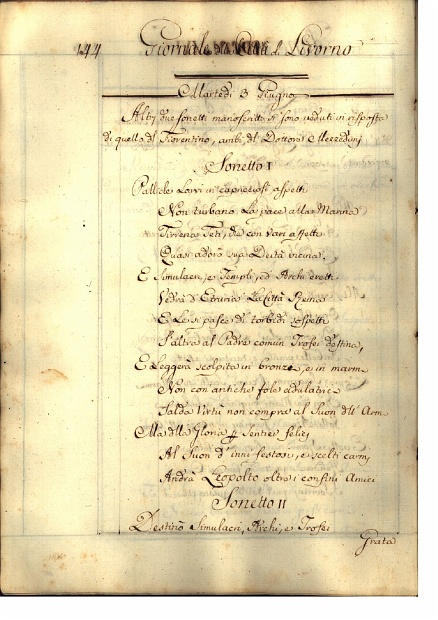 144 Giornale della Città di Livorno
Martedì 3 Giugno
Altri due sonetti manoscritti si sono veduti in risposta
di quello del Fiorentino, ambi del Dottore
Sonetto I
Pallide Larvi in capricciosi aspetti
Non turbano La pace alla Marina
Tirrena Teti, che con vari affetti
Quasi adorò sua Deità vicina.
E Simulacri, e Templi, ed Archi eretti
Vedrà d'Etruria La Città Reina
E Le si pasce di torbidi sospetti
L'altra al Padre comun Trofei destina,
E Leggerà scolpita in bronzo, e in marmi
Non con antiche fole adulatrici
Salda Virtù non compra al Suon dell'Armi
Ma della Gloria per Sentier felici,
Al Suon d'inni festosi, e scelti carmi,
Andrà Leopolto oltre i confini Amici
Sonetto II
Destino Simulacri, Archi, e Trofei
Grata